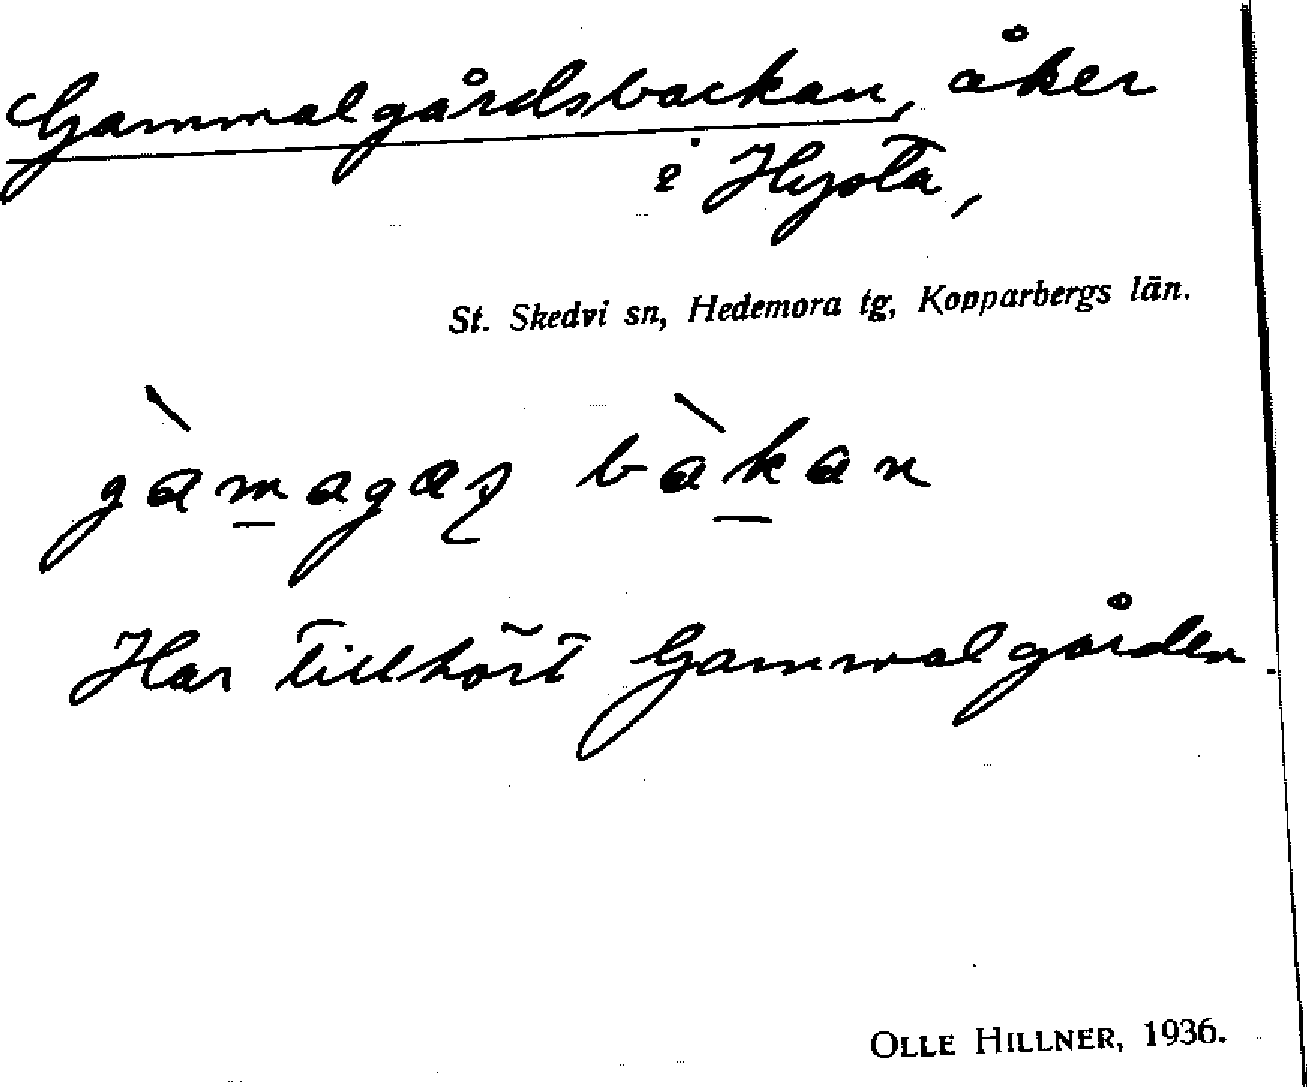 Gammalgårdsbackan, åker
i Hysta,
St. Skedvi sn, Hedemora tg, Kopparbergs län.
gàmagaʂ bàkan
Har tillhört Gammalgården.
OLLE HILLNER, 1936.